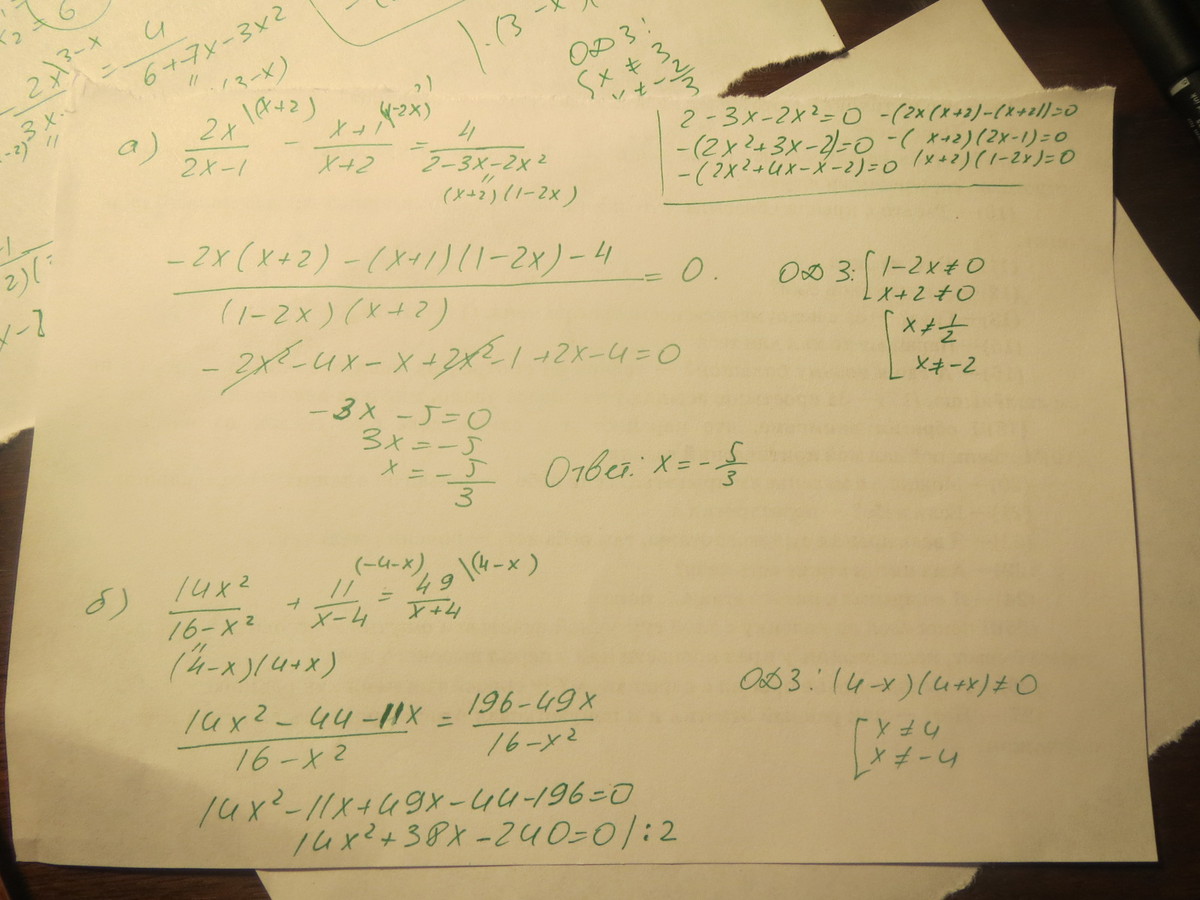 x₂ = 6
2x\3-x = 4/(6+7x-3x²)
(3-x)
\·(3-x)
ОДЗ:
а) 2x/(2x-1) \(x+2) - (x+1)/(x+2) \(1-2x) = 4/(2-3x-2x²)
"
(x+2)(1-2x)
2-3x-2x²=0 -(2x(x+2)-(x+2))=0
-(2x²+3x-2)=0 -(x+2)(2x-1)=0
-(2x²+4x-x-2)=0 (x+2)(1-2x)=0
(-2x(x+2)-(x+1)(1-2x)-4)/((1-2x)(x+2)) = 0.
ОДЗ: [1-2x≠0
x+2≠0
[x≠1/2
x≠-2
-2x²-4x-x+2x²-1+2x-4=0
-3x-5=0
3x=-5
x=-5/3
Ответ: x=-5/3
б) 14x²/(16-x²) + 11/(x-4) \(-4-x) = 49/(x+4) \(4-x)
"
(4-x)(4+x)
ОДЗ: (4-x)(4+x)≠0
[x≠4
x≠-4
(14x²-44-11x)/(16-x²) = (196-49x)/(16-x²)
14x²-11x+49x-44-196=0
14x²+38x-240=0 |:2